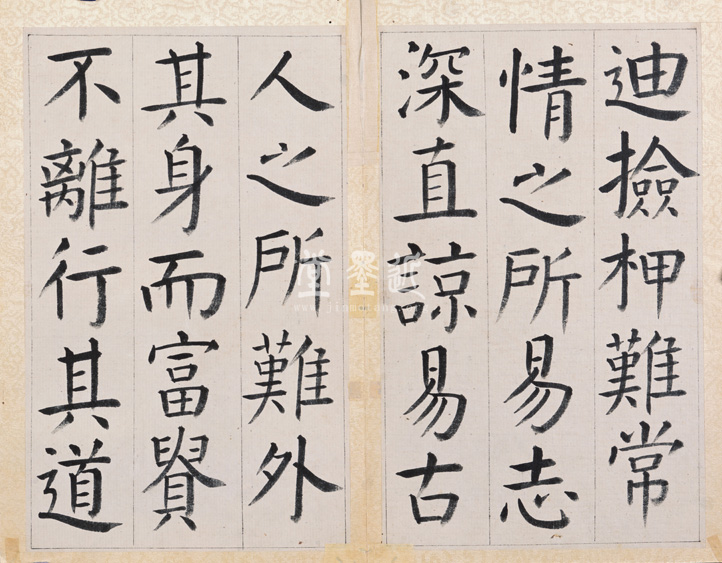 迪撿柙難常
情之所易志
深直諒易古
人之所難外
其身而富貴
不離行其道